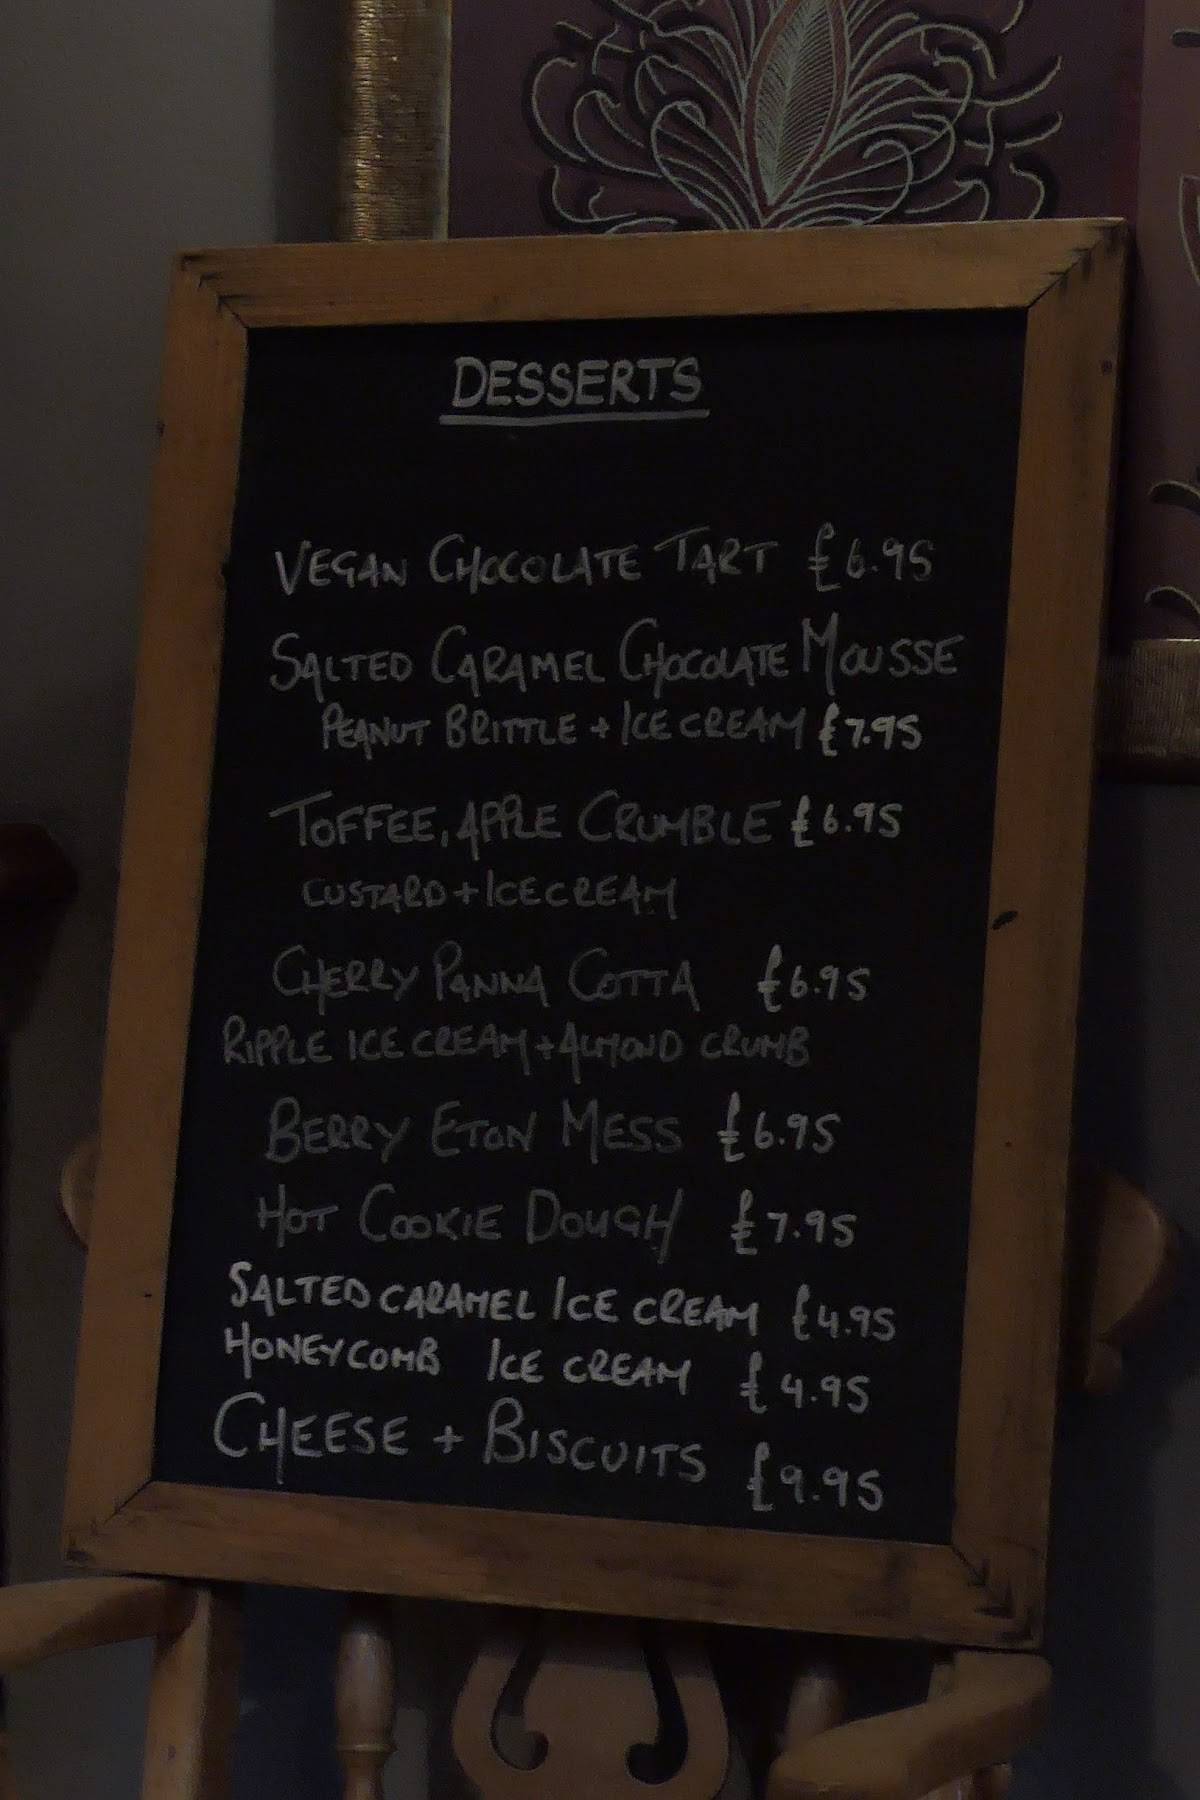 DESSERTS
VEGAN CHOCOLATE TART £6.95
SALTED CARAMEL CHOCOLATE MOUSSE
PEANUT BRITTLE + ICE CREAM £7.95
TOFFEE, APPLE CRUMBLE £6.95
CUSTARD + ICE CREAM
CHERRY PANNA COTTA £6.95
RIPPLE ICE CREAM + ALMOND CRUMB
BERRY ETON MESS £6.95
HOT COOKIE DOUGH £7.95
SALTED CARAMEL ICE CREAM £4.95
HONEYCOMB ICE CREAM £4.95
CHEESE + BISCUITS £9.95